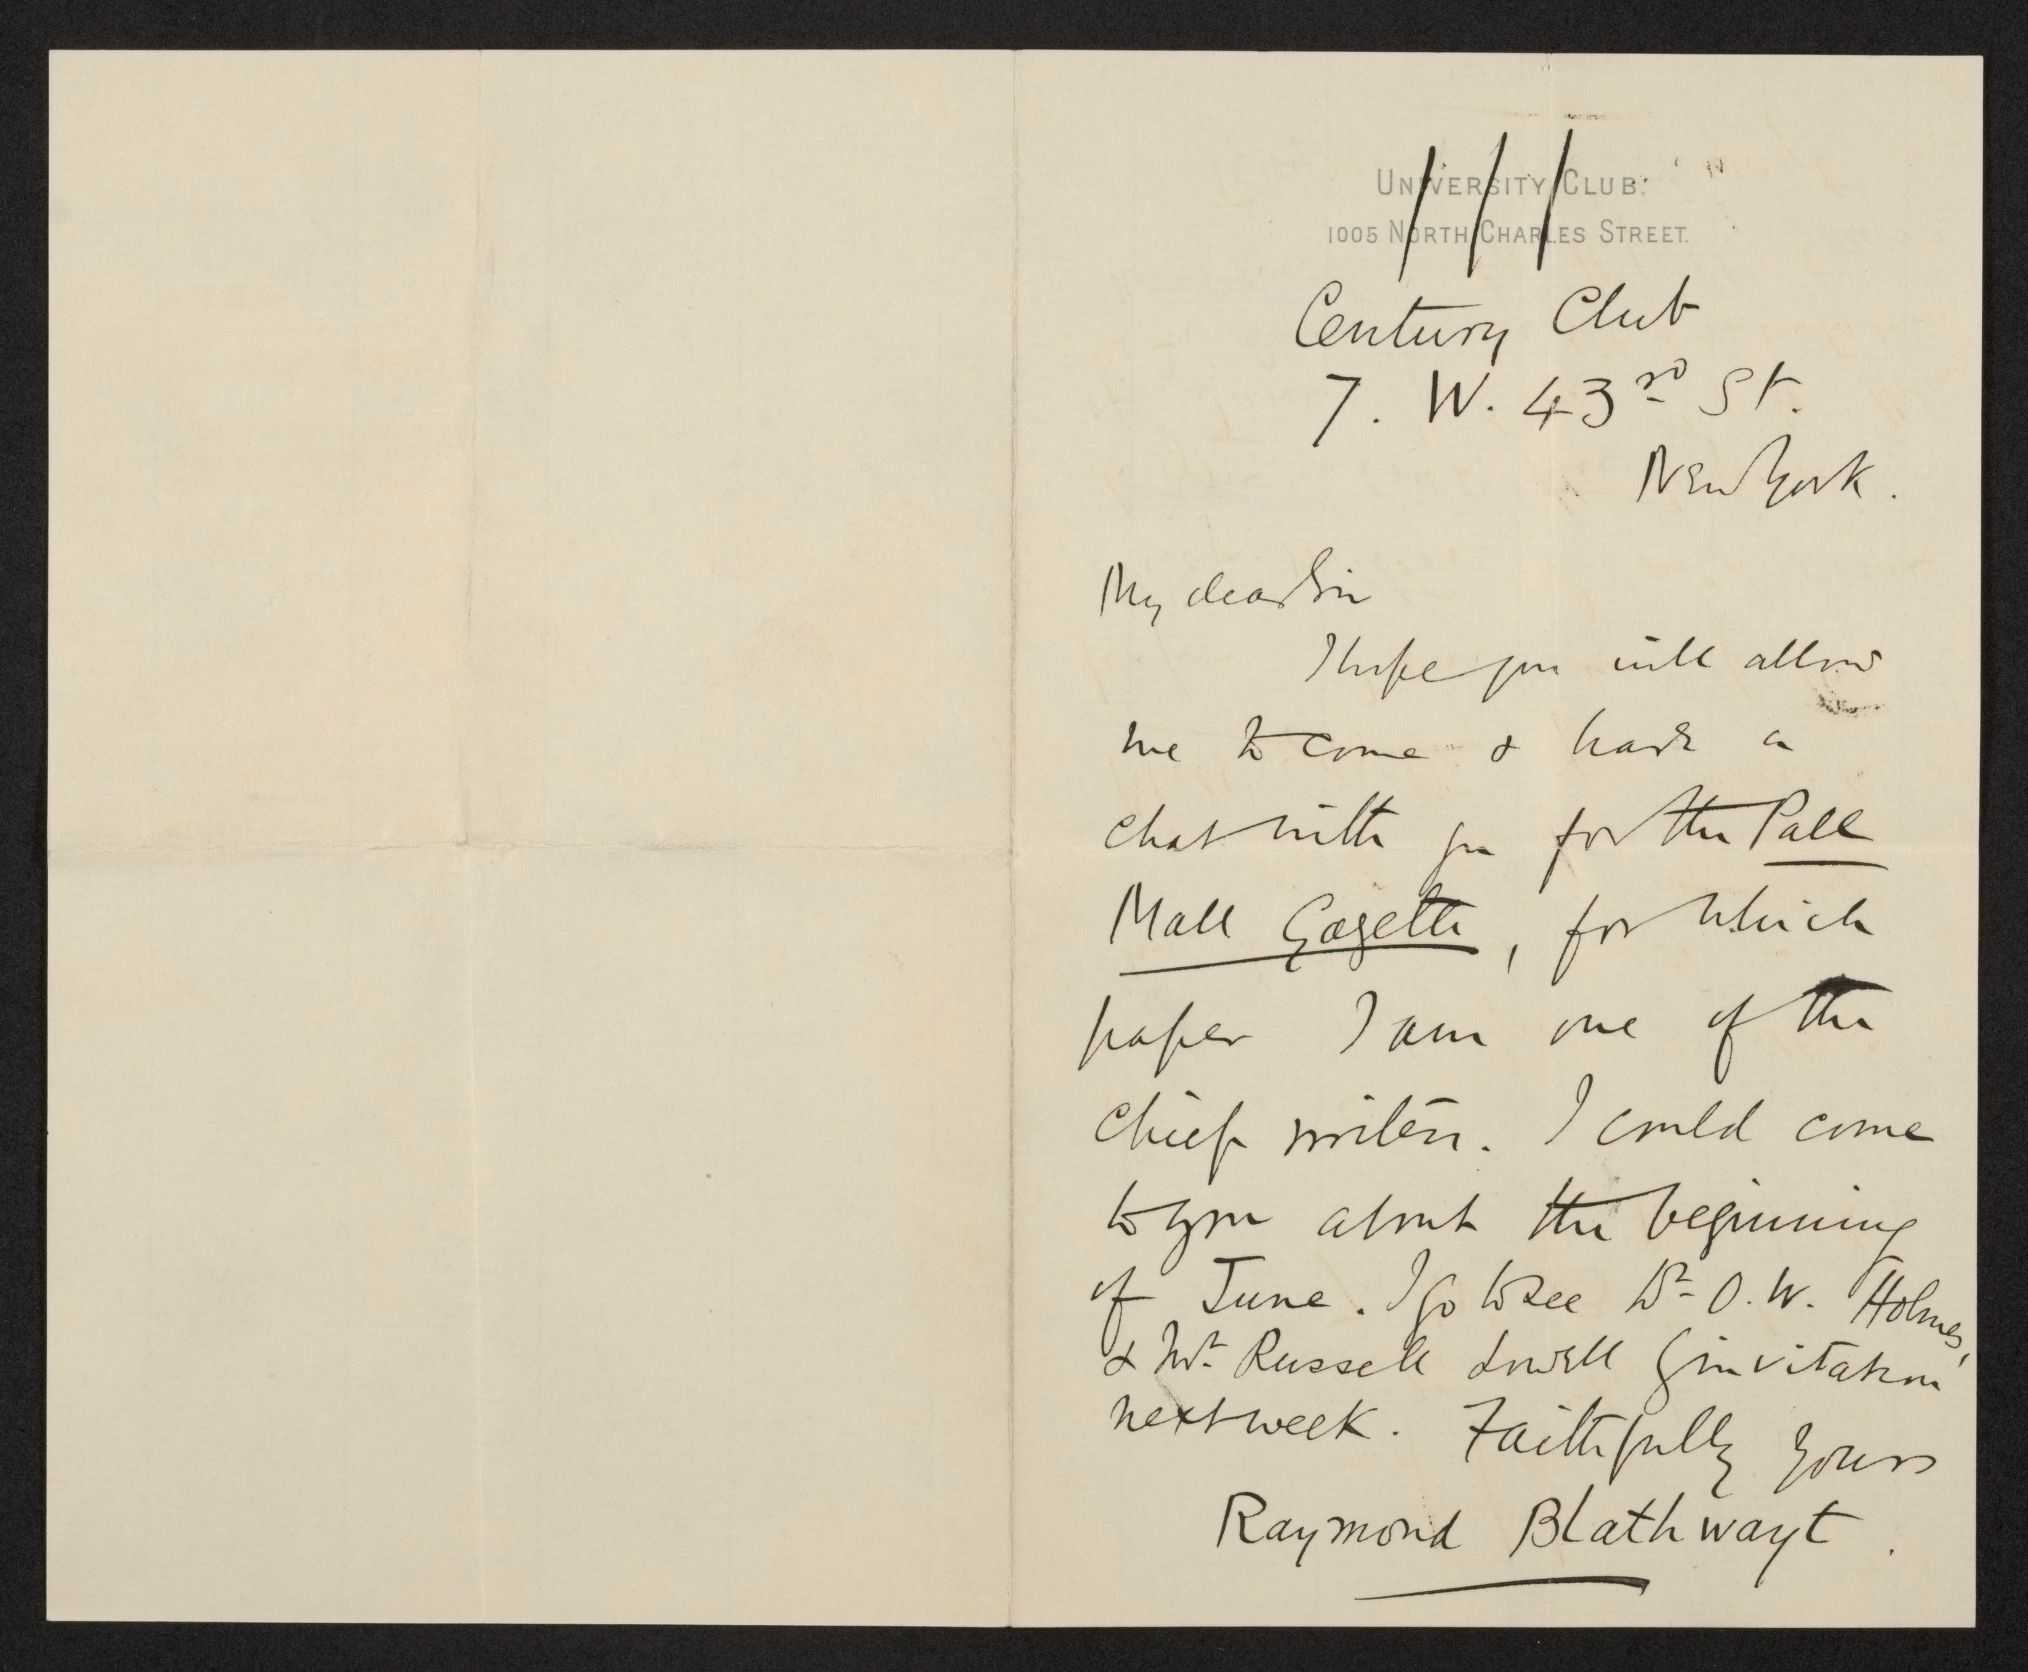 UNIVERSITY CLUB.
1005 NORTH CHARLES STREET.
Century Club
7. W. 43rd St.
New York.
My dear Sir
I hope you will allow
me to come & have a
chat with you for the Pall
Mall Gazette, for which
paper I am one of the
chief writers. I could come
to you about the beginning
of June. I go to see Dr. O. W. Holmes,
& Mr. Russell Lowell by invitation
next week. Faithfully yours
Raymond Blathwayt.